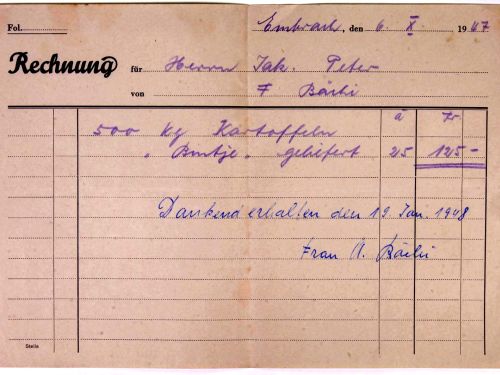 Fol.
Embrach, den 6. X. 1947
Rechnung für Herrn Jak. Peter
von F Bächi
à Fr
500 kg Kartoffeln
„ Bintje „ geliefert 25 125 -
Dankend erhalten den 19. Jan. 1948
Frau A. Bächi
Stella